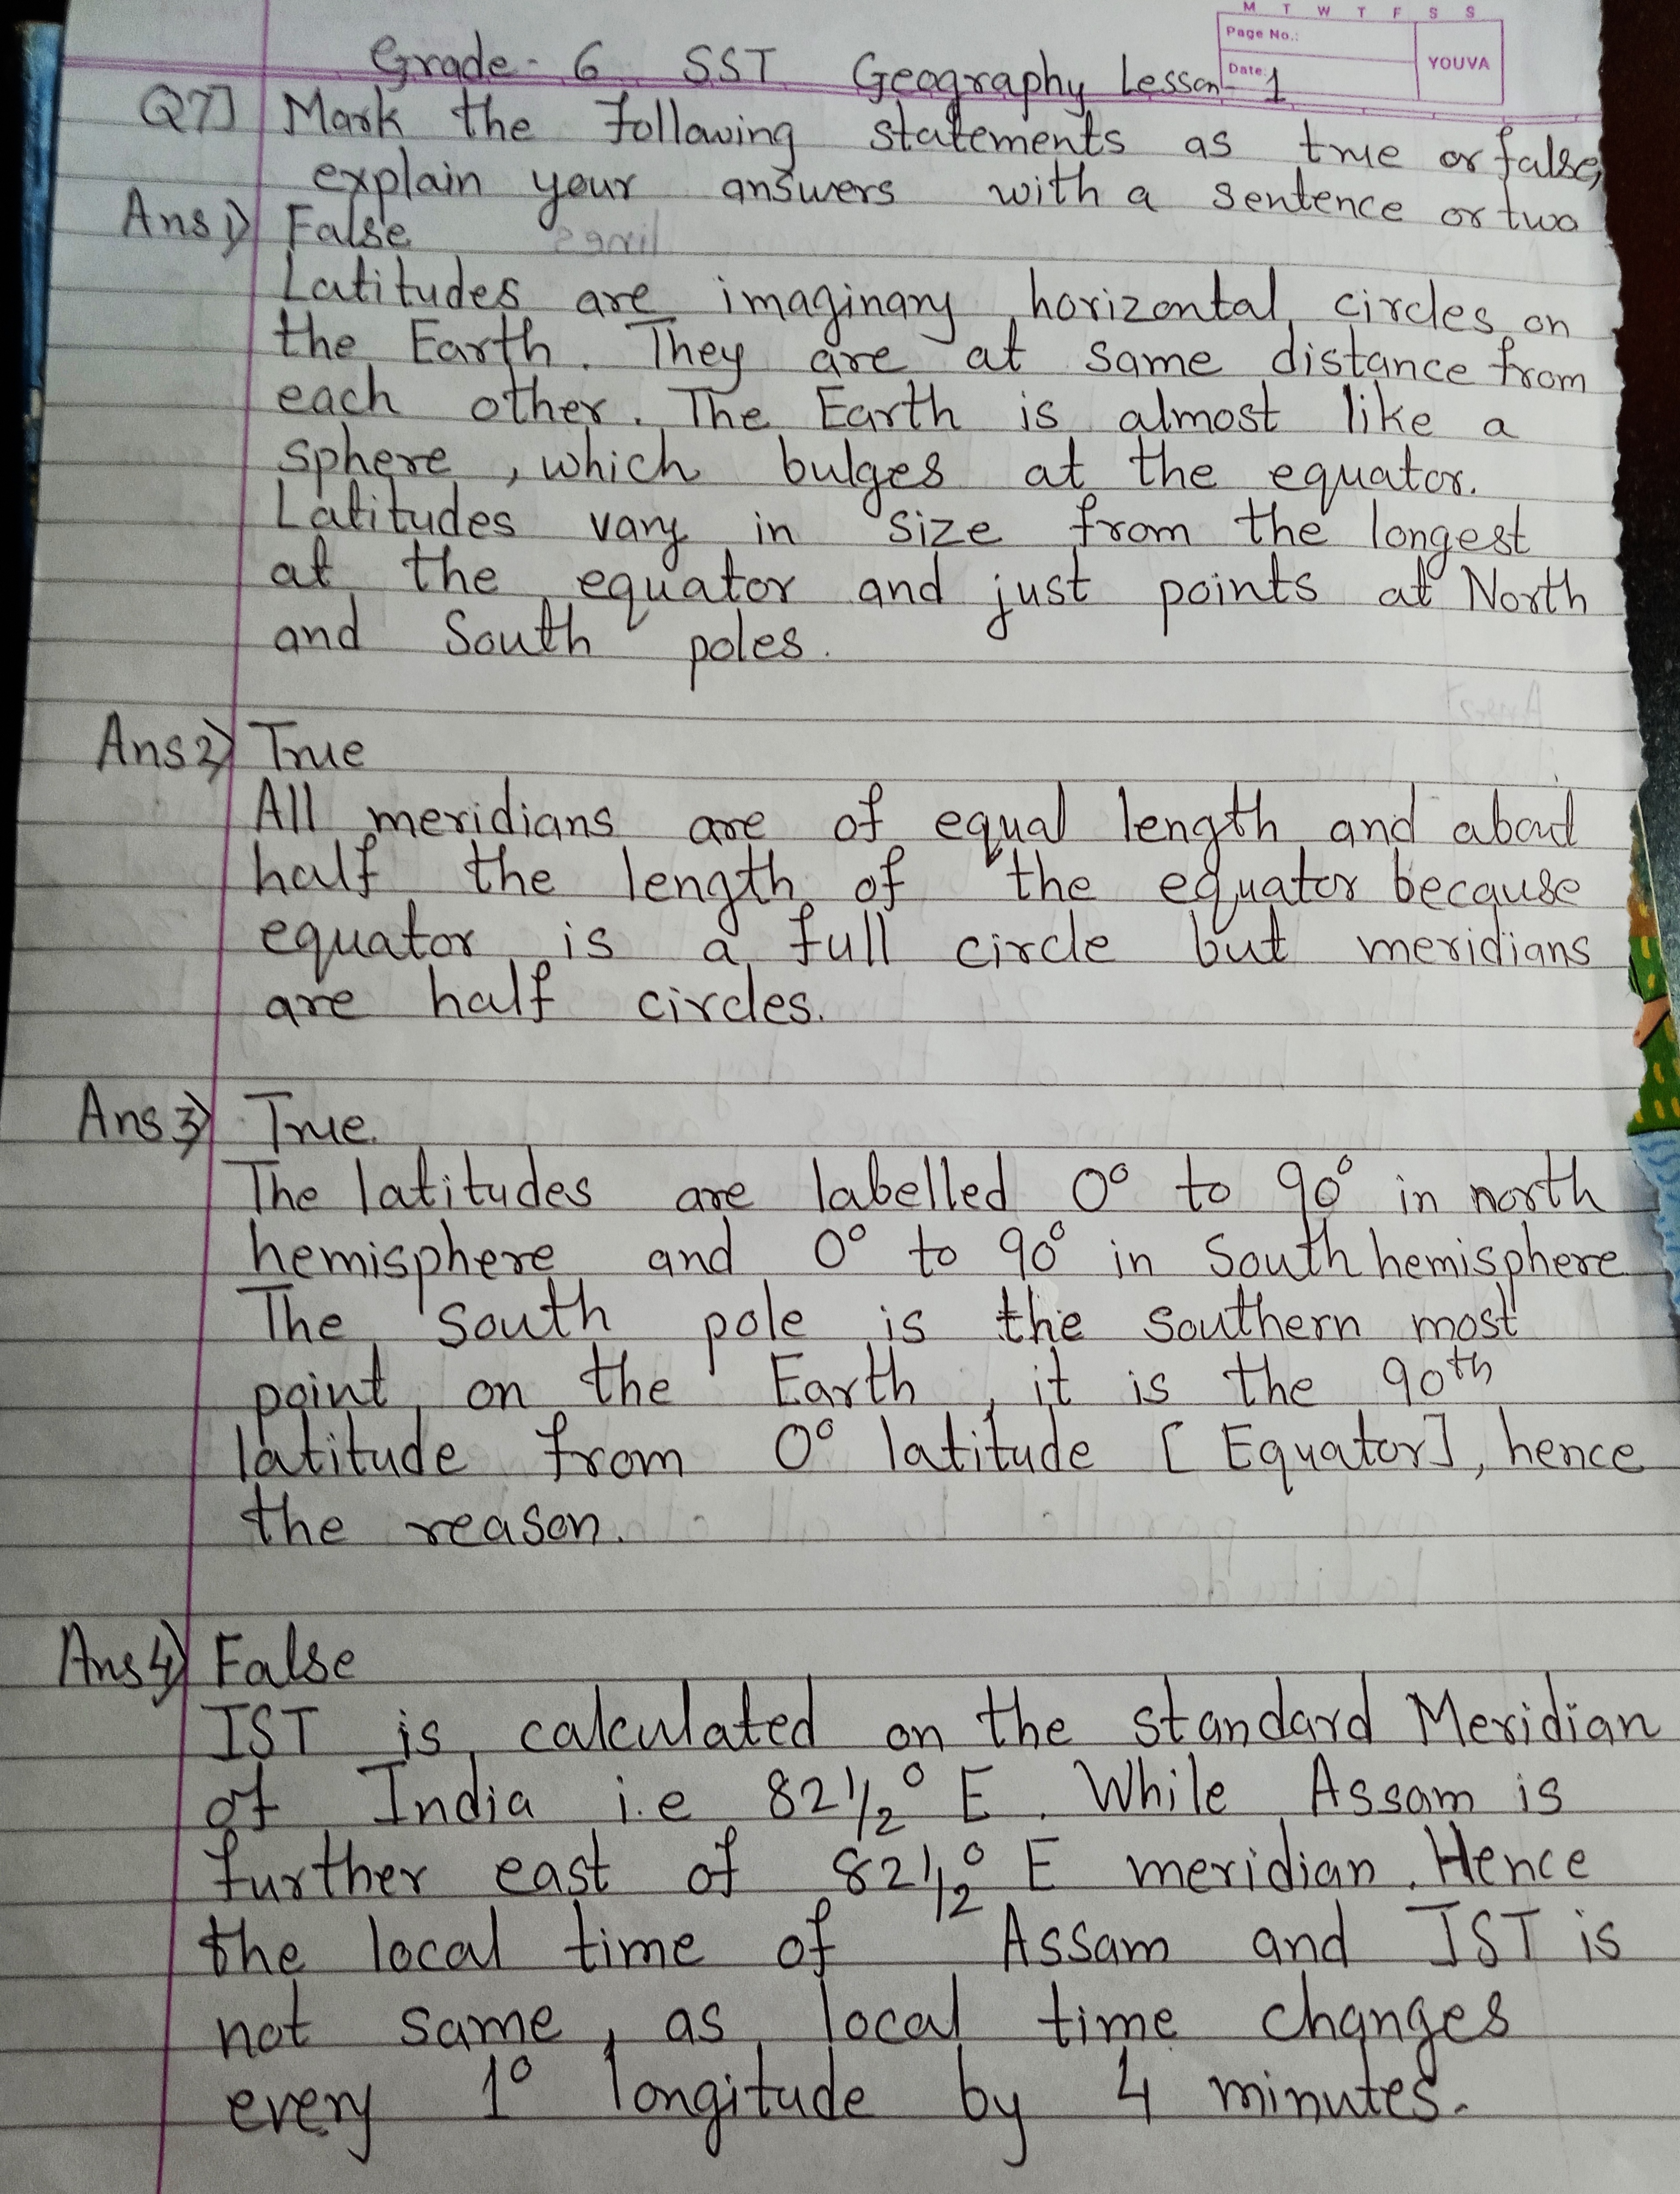 M T W T F S S
Page No.:
Date:
YOUVA
Grade - 6 SST Geography Lesson - 1
Q7] Mark the following statements as true or false,
explain your answers with a sentence or two
Ans 1) False
Latitudes are imaginary horizontal circles on
the Earth. They are at same distance from
each other. The Earth is almost like a
sphere, which bulges at the equator.
Latitudes vary in size from the longest
at the equator and just points at North
and South poles.
Ans 2) True
All meridians are of equal length and about
half the length of the equator because
equator is a full circle but meridians
are half circles.
Ans 3) True.
The latitudes are labelled 0° to 90° in north
hemisphere and 0° to 90° in South hemisphere
The south pole is the southern most
point on the Earth, it is the 90th
latitude from 0° latitude [Equator], hence
the reason.
Ans 4) False
IST is calculated on the standard Meridian
of India i.e 82 1/2° E. While Assam is
further east of 82 1/2° E meridian. Hence
the local time of Assam and IST is
not same, as local time changes
every 1° longitude by 4 minutes.